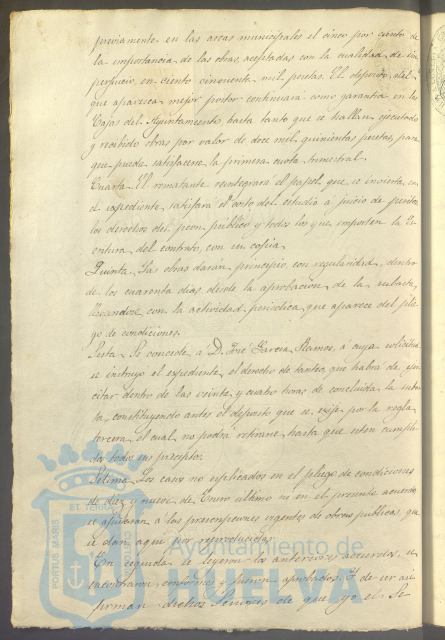 previamente en las arcas municipales el cinco por ciento de
la importancia de las obras aceptadas con la cualidad de sin
perjuicio en ciento cincuenta mil pesetas. El deposito del
que aparezca mejor postor continuará como garantia en las
Cajas del Ayuntamiento hasta tanto que se hallen ejecutado
y recibido obras por valor de doce mil quinientas pesetas, para
que pueda satisfacerse la primera cuota trimestral.
Cuarta. El rematante reintegrará el papel que se invierta en
el expediente, satisfará el costo del estudio a juicio de peritos
los derechos del peon público y todos los que importen la Es
critura del contrato, con su copia.
Quinta. Las obras darán principio con regularidad, dentro
de los cuarenta dias desde la aprobacion de la subasta,
llevandose con la actividad periodica que aparece del plie
go de condiciones.
Sesta. Se concede a D. José Garcia Ramos, á cuya solicitud
se instruyó el expediente, el derecho de tanteo, que habrá de ejer
citar dentro de las veinte y cuatro horas de concluida la subas
ta, constituyendo antes el deposito que se exije por la regla
tercera, el cual no podrá retirarse, hasta que esten cumpli
dos todos sus preceptos.
Setima. Los casos no esplicados en el pliego de condiciones
de diez y nueve de Enero último ni en el presente acuerdo
se ajustarán á los vigentes de obras publicas, que
se dan aquí por reproducidas.
En seguida se leyeron los anteriores acuerdos, se
encontraron conformes y fueron aprobados. Y de ser asi
firman dichos Señores de que yo el Se
PORTUS MARIS
ET TERRAE
Ayuntamiento de
HUELVA